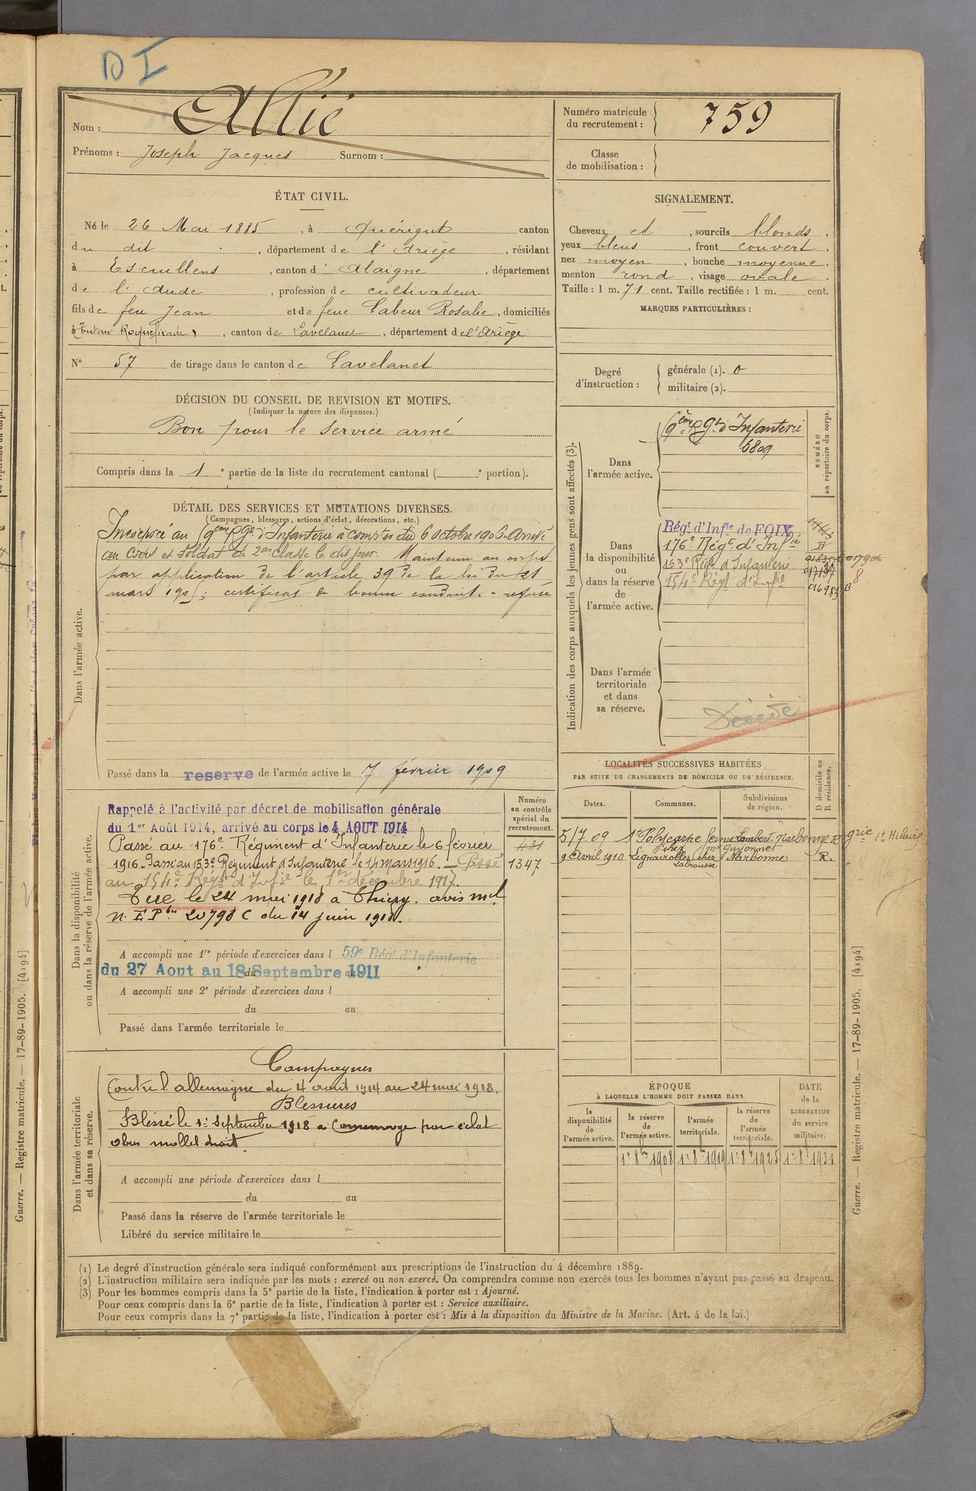 DI
Nom : Allié
Prénoms : Joseph Jacques Surnom :
Numéro matricule du recrutement : 759
Classe de mobilisation :
ÉTAT CIVIL.
Né le 26 Mai 1885, à Quérigut canton
du dit, département de l'Ariège, résidant
à Escuillens, canton d'Alaigne, département
de l'Aude, profession de cultivateur
fils de feu Jean et de feue Labeur Rosalie, domiciliés
à Roquefixade, canton de Lavelanet, département de l'Ariège
N° 57 de tirage dans le canton de Lavelanet
SIGNALEMENT.
Cheveux et, sourcils blonds.
yeux bleus, front couvert.
nez moyen, bouche moyenne.
menton rond, visage ovale.
Taille : 1 m. 71 cent. Taille rectifiée : 1 m. cent.
MARQUES PARTICULIÈRES :
Degré d'instruction : générale (1). 0
militaire (2).
DÉCISION DU CONSEIL DE REVISION ET MOTIFS.
(Indiquer la nature des dispenses.)
Bon pour le service armé
Compris dans la 1e partie de la liste du recrutement cantonal ( e portion).
DÉTAIL DES SERVICES ET MUTATIONS DIVERSES.
(Campagnes, blessures, actions d'éclat, décorations, etc.)
Dans l'armée active.
Incorporé au d'Infanterie à compter du 6 octobre 1906. Arrivé
au corps et soldat de 2ème classe le dit jour. Maintenu au corps
par application de l'article 39 de la loi du 21
mars 1905; certificat de bonne conduite: refusé
Passé dans la reserve de l'armée active le 7 février 1909
Indication des corps auxquels les jeunes gens sont affectés (3).
NUMÉRO au répertoire du corps.
Dans l'armée active.
d'Infanterie
6809
Dans la disponibilité ou dans la réserve de l'armée active.
Régt d'Infie de FOIX
176e Régt d'Infie
153e Régt d'Infanterie
154e Régt d'Infie
Dans l'armée territoriale et dans sa réserve.
Décédé
Dans la disponibilité ou dans la réserve de l'armée active.
Rappelé à l'activité par décret de mobilisation générale
du 1er Août 1914, arrivé au corps le 4 AOUT 1914
Passé au 176e Régiment d'Infanterie le 6 février
1916. Passé au 153e Régiment d'Infanterie le 14 mars 1916. Passé
au 154e Régt d'Infie le 1er décembre 1917.
Tué le 24 mai 1918 à Thiepy. avis mel
n. E.Pte 20798 C du 14 juin 1918.
Numéro au contrôle spécial du recrutement.
1347
A accompli une 1re période d'exercices dans l 59e Régt d'Infanterie
du 27 Aout au 18 Septembre 1911
A accompli une 2e période d'exercices dans l
du au
Passé dans l'armée territoriale le
LOCALITÉS SUCCESSIVES HABITÉES
PAR SUITE DE CHANGEMENTS DE DOMICILE OU DE RÉSIDENCE.
Dates. Communes. Subdivisions de région. D domicile ou R résidence.
5/7 09 St Polycarpe Narbonne R
9 Avril 1910 Lignairolles chez Mr Guyonnet Labrousse Narbonne R.
Dans l'armée territoriale et dans sa réserve.
Campagnes
Contre l'allemagne du 4 août 1914 au 24 mai 1918.
Blessures
Blessé le 1er septembre 1918 à par éclat
obus mollet droit.
A accompli une période d'exercices dans l
du au
Passé dans la réserve de l'armée territoriale le
Libéré du service militaire le
ÉPOQUE
À LAQUELLE L'HOMME DOIT PASSER DANS
la disponibilité de l'armée active. la réserve de l'armée active. l'armée territoriale. la réserve de l'armée territoriale. DATE de la LIBÉRATION du service militaire.
1r 8bre 1908 1r 8bre 1919 1r 8bre 1925 1r 8bre 1931
(1) Le degré d'instruction générale sera indiqué conformément aux prescriptions de l'instruction du 4 décembre 1889.
(2) L'instruction militaire sera indiquée par les mots : exercé ou non exercé. On comprendra comme non exercés tous les hommes n'ayant pas passé au drapeau.
(3) Pour les hommes compris dans la 5e partie de la liste, l'indication à porter est : Ajourné.
Pour ceux compris dans la 6e partie de la liste, l'indication à porter est : Service auxiliaire.
Pour ceux compris dans la 7e partie de la liste, l'indication à porter est : Mis à la disposition du Ministre de la Marine. (Art. 4 de la loi.)
Guerre. — Registre matricule. — 17-89-1905. [4194]
Guerre. — Registre matricule. — 17-89-1905. [4194]